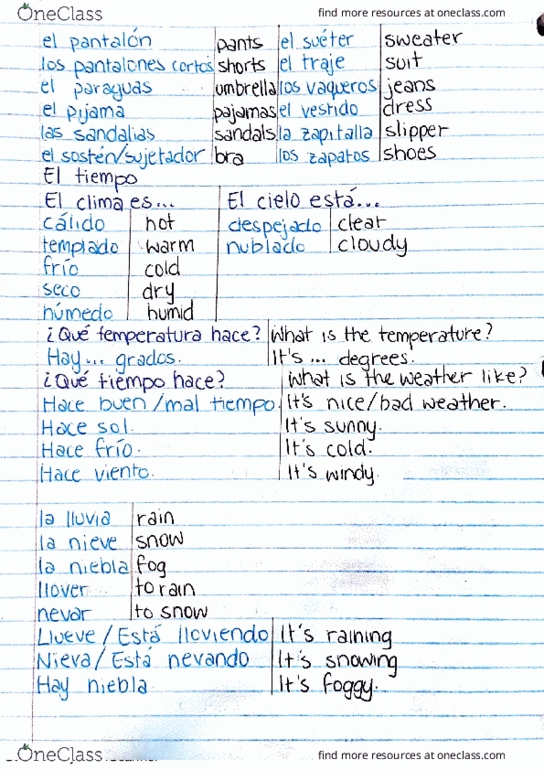 OneClass find more resources at oneclass.com
el pantalón pants el suéter sweater
los pantalones cortos shorts el traje suit
el paraguas umbrella los vaqueros jeans
el pijama pajamas el vestido dress
las sandalias sandals la zapitalla slipper
el sostén/sujetador bra los zapatos shoes
El tiempo
El clima es... El cielo está...
cálido hot despejado clear
templado warm nublado cloudy
frío cold
seco dry
húmedo humid
¿Qué temperatura hace? What is the temperature?
Hay... grados. It's ... degrees.
¿Qué tiempo hace? What is the weather like?
Hace buen/mal tiempo. It's nice/bad weather.
Hace sol. It's sunny.
Hace frío. It's cold.
Hace viento. It's windy.
la lluvia rain
la nieve snow
la niebla fog
llover to rain
nevar to snow
Llueve / Está lloviendo It's raining
Nieva / Está nevando It's snowing
Hay niebla It's foggy.
OneClass find more resources at oneclass.com